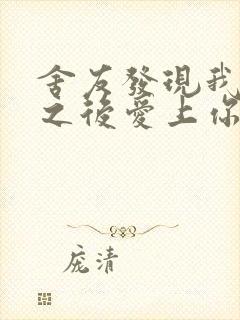 舍友發現我
之後愛上你
庞清